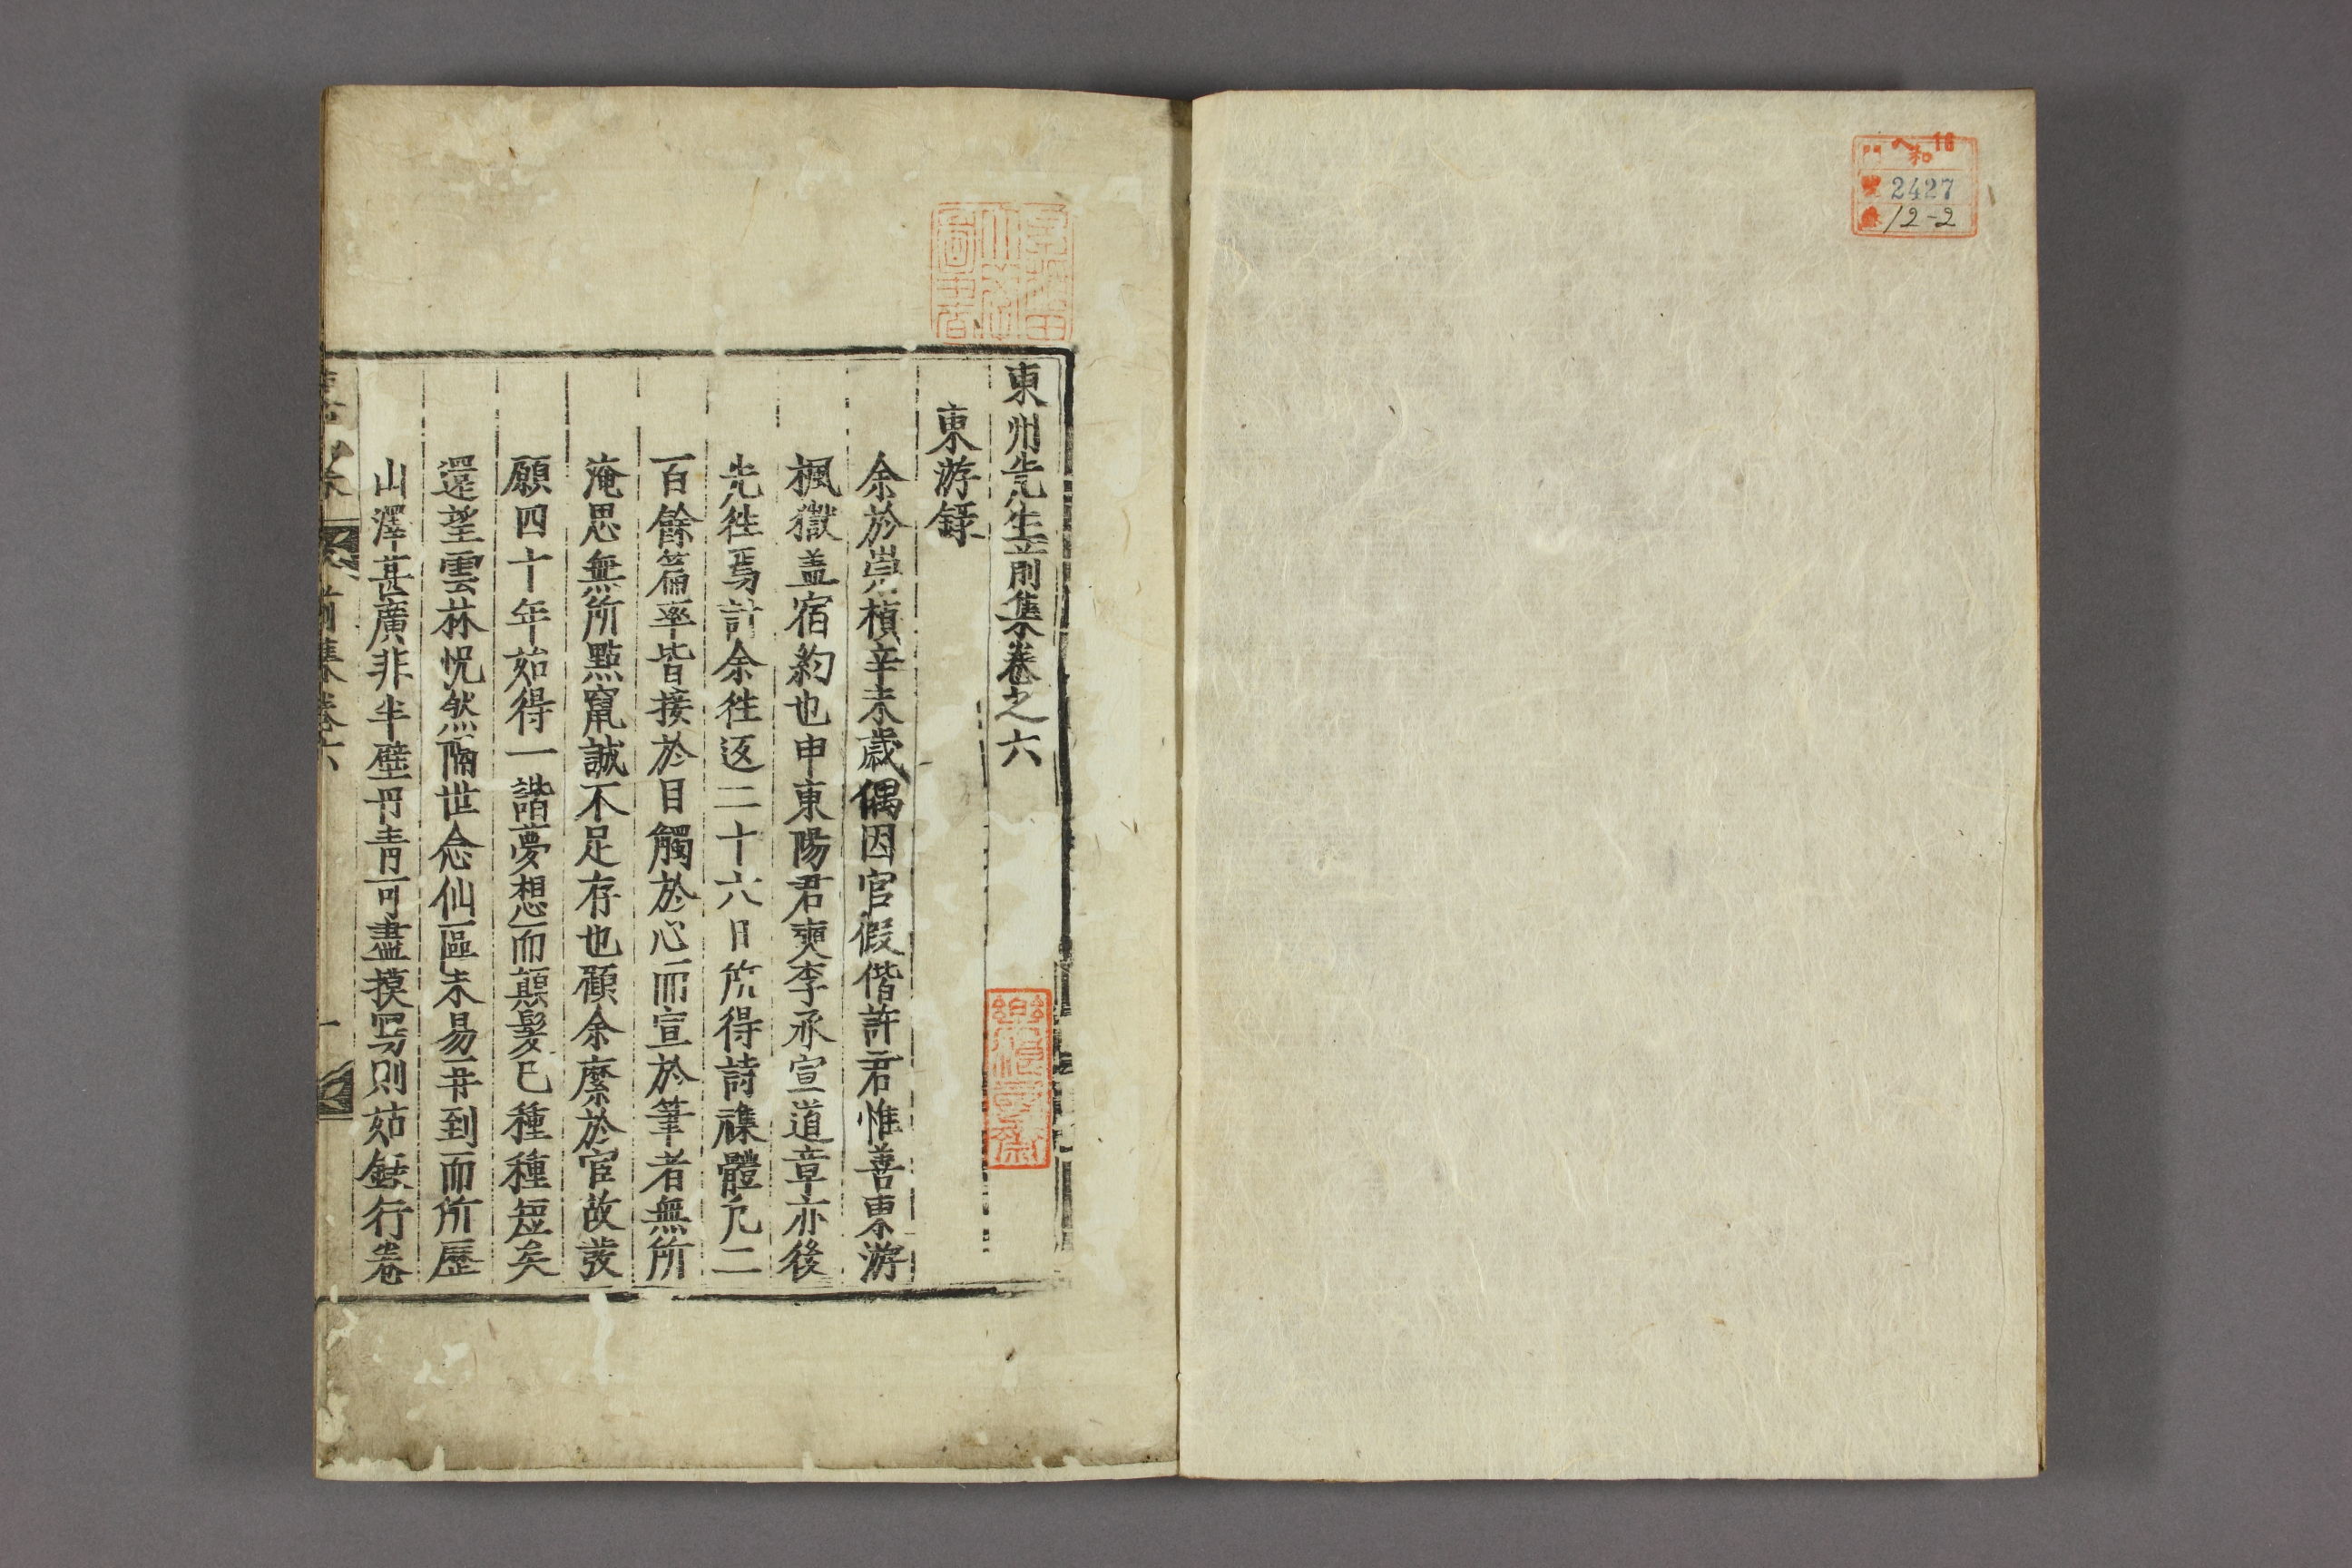 へ16
和
門
號 2427
卷 12-2
早稲田
大學
圖書
東州先生前集卷之六
東游録
余於崇禎辛未歲偶因官假偕許君惟善東游
楓嶽盖宿約也申東陽君奭李承宣道章亦後
先徃焉計余徃返二十六日所得詩襍體凡二
百餘篇率皆接於目觸於心而宣於筆者無所
淹思無所點竄誠不足存也顧余縻於官故發
願四十年始得一諧夢想而顛髮已種種短矣
還望雲林怳然隔世念仙區未易再到而所歷
山澤甚廣非半壁丹青可盡摸寫則姑錄行卷
前集卷六
一